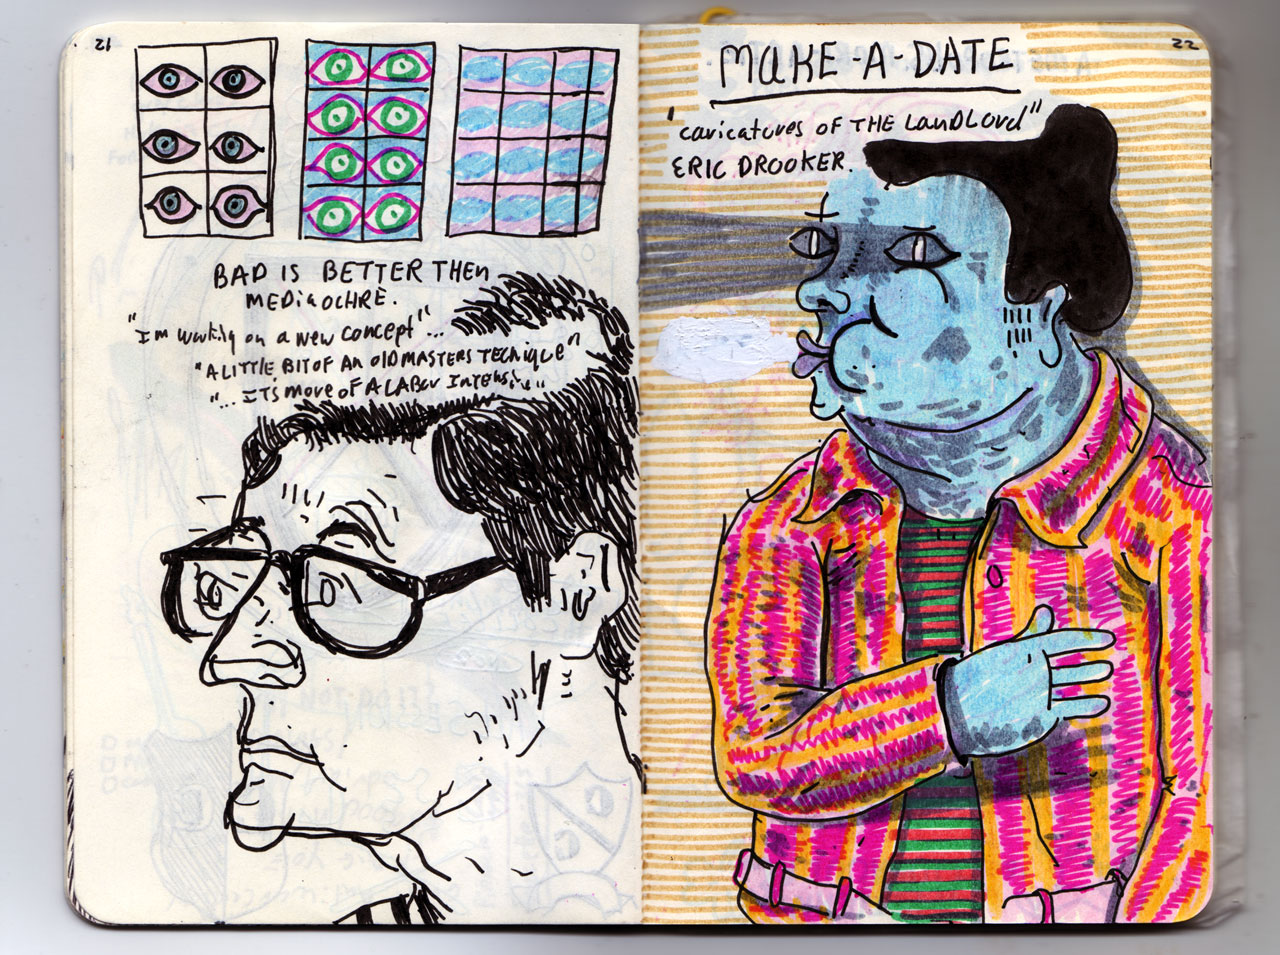 21
BAD IS BETTER THEN
MEDiaOCHRE.
"I'm working on a new concept"...
"A LiTTLE BIT OF AN OLD MASTERS TECHNiQUE"
"... IT'S MORE OF A LABOU INTENSi
22
MAKE-A-DATE
"caricatures OF THE LanDLord"
ERIC DROOKER.